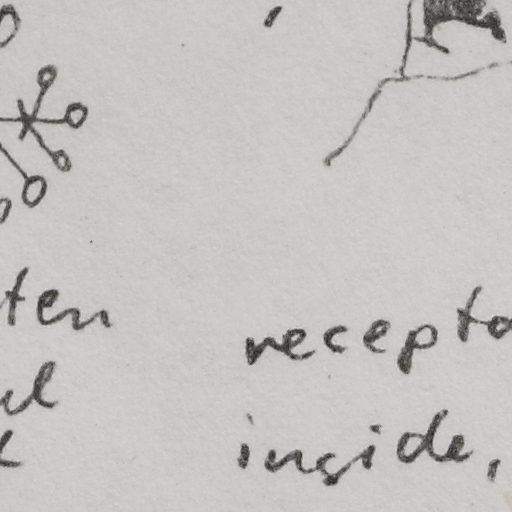 ten
recepto
inside,